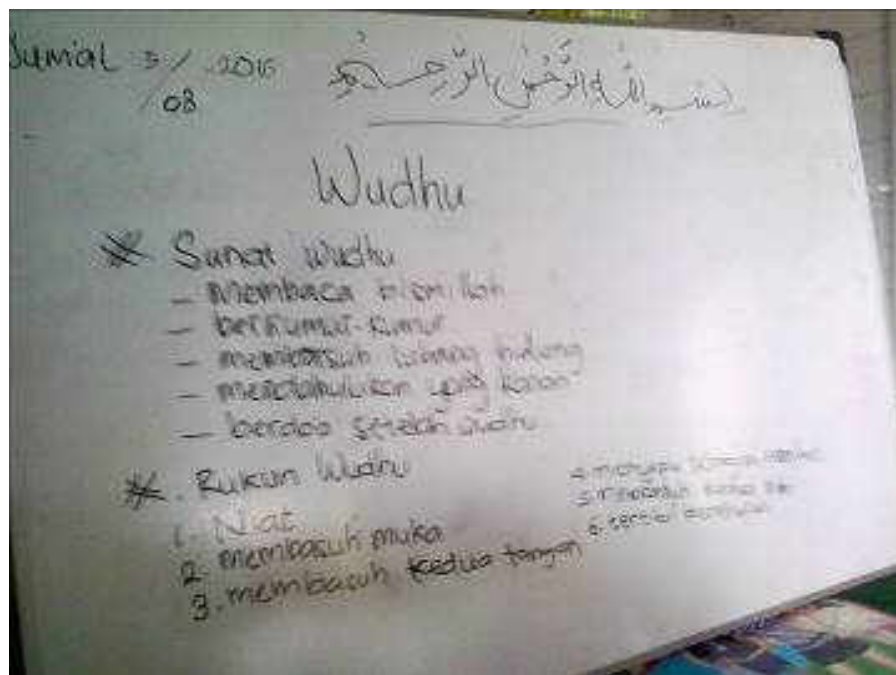 Jum'at 5/08 .2016
بسم الله الرحمن الرحيم
Wudhu
* Sunat wudhu
- membaca bismillah
- berkumur-kumur
- membasuh lubang hidung
- mendahulukan yang kanan
- berdoa setelah wudhu
* . Rukun Wudhu
1. Niat
2. membasuh muka
3. membasuh kedua tangan
4. menyapu sebagian
5. membasuh kedua kaki
6. tertib